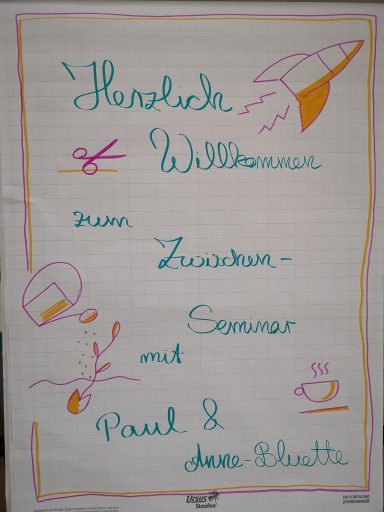 Herzlich
Willkommen
zum
Zwischen-
Seminar
mit
Paul &
Anne-Bluette
URSUS
Staufen